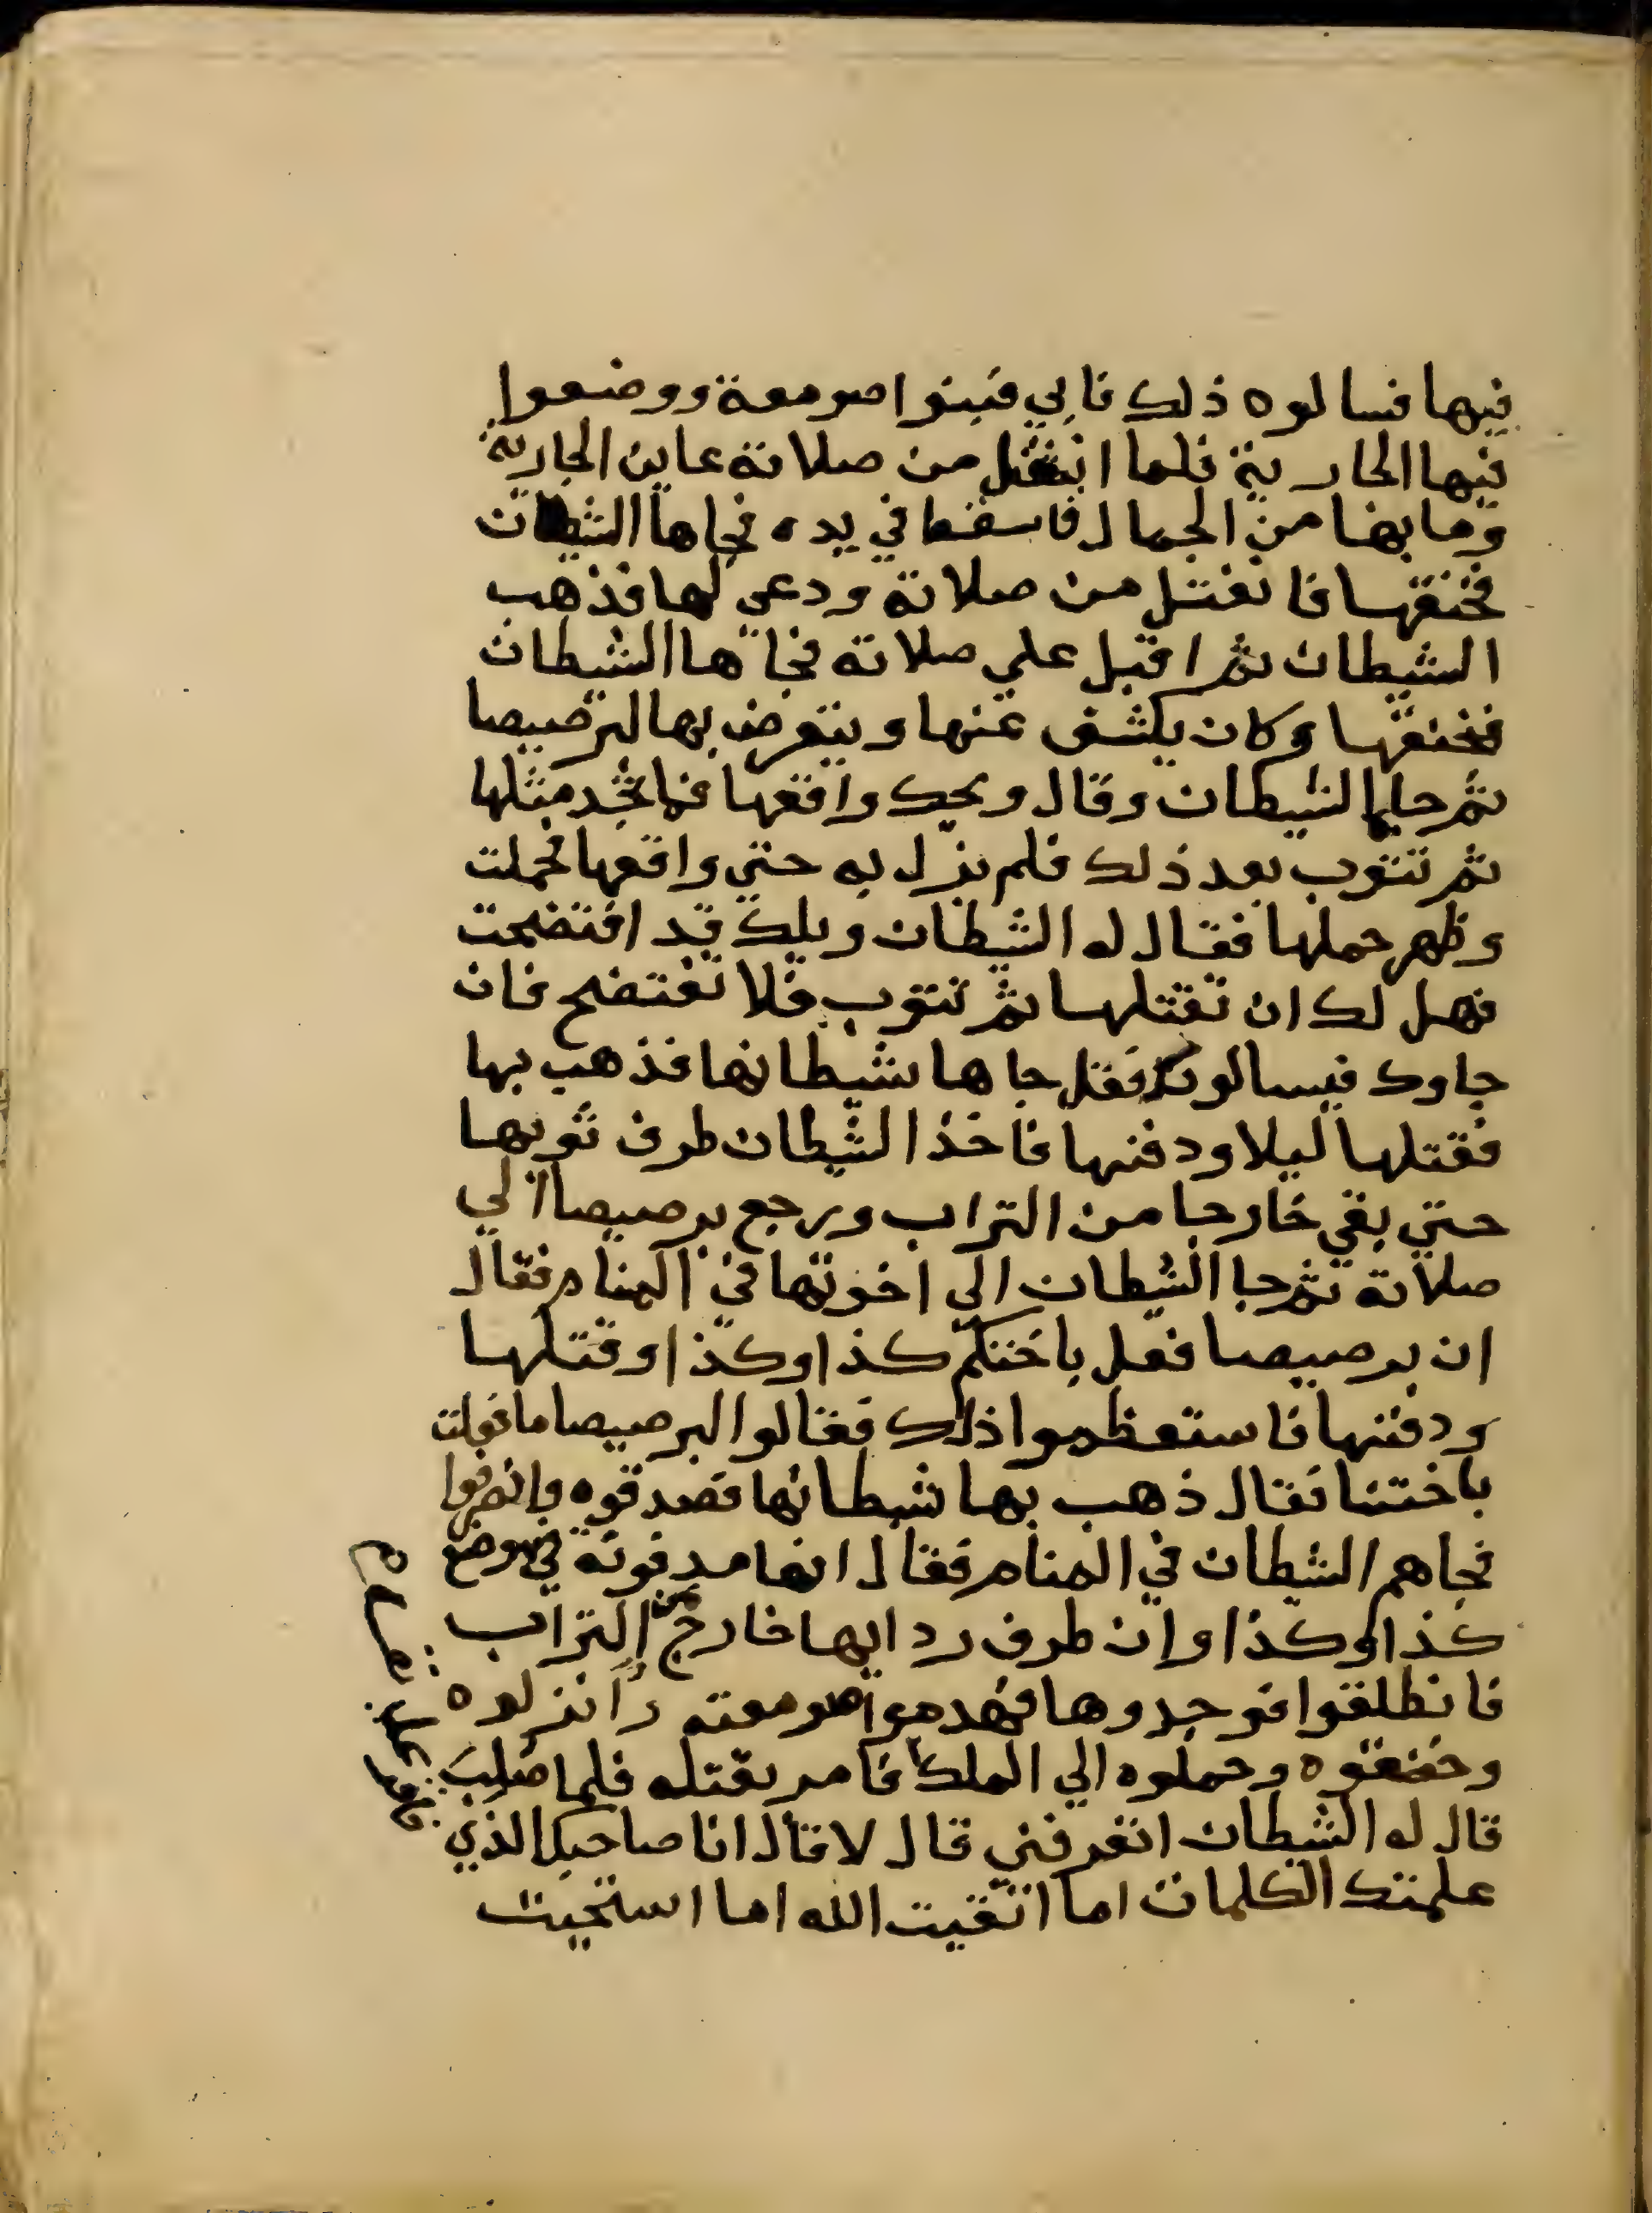 فيها فسالوه ذلك فابي فبنوا صومعة ووضعوا
فيها الجارية فلما انفتل من صلاته عاين الجارية
وما بها من الجمال فاسقط في يده فجاها الشيطان
فخنقها فانفتل من صلاته ودعي لها فذهب
الشيطان ثم اقبل علي صلاته فجاها الشيطان
فخنقها وكان يكشف عنها ويتعرض بها لبرصيصا
ثم جا الشيطان وقال ويحك واقعها فما تجد مثلها
ثم تتوب بعد ذلك فلم يزل به حتي واقعها فحملت
وظهر حملها فقال له الشيطان ويلك قد افتضحت
فهل لك ان تقتلها ثم تتوب فلا تفتضح فان
جاوك فيسالونك فقل جاها شيطانها فذهب بها
فقتلها ليلا ودفنها فاخذ الشيطان طرف ثوبها
حتي بقي خارجا من التراب ورجع برصيصا الي
صلاته ثم جا الشيطان الي اخوتها في المنام فقال
ان برصيصا فعل باختكم كذا وكذا وقتلها
ودفنها فاستعظموا ذلك فقالوا البرصيصا ما فعلت
باختنا فقال ذهب بها شيطانها فصدقوه وانصرفوا
فجاهم الشيطان في المنام فقال انها مدفونة في موضع
كذا وكذا وان طرف ردايها خارج من التراب
فانطلقوا فوجدوها فهدموا صومعته وانزلوه
وخنقوه وحملوه الي الملك فامر بقتله فلما صلب
قال له الشيطان اتعرفني قال لا قال انا صاحبك الذي
علمتك الكلمات اما اتقيت الله اما استحيت